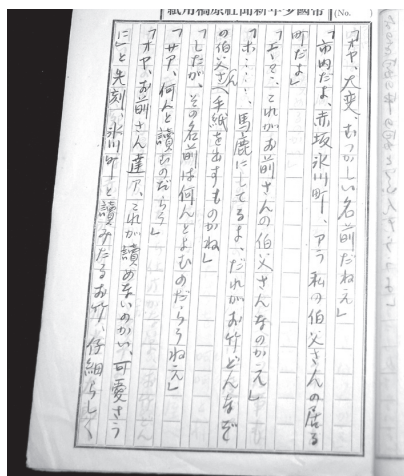 帝國少年新聞社原稿用紙 (No.
「オヤ、大変むつかしい名前だねえ」
「市内だよ、赤坂氷川町―、アラ私の伯父さんの居る
町だよ」
これがお前さんの伯父さんなのかえ」
「ホ……、馬鹿にしてるよ、だれがお竹どんなぞ
の伯父さんへ手紙を出すものかね」
「したが、その名前は何んとよむのだらうねえ」
「サア、何んと讀むのだらう」
「オヤ、お前さん達ア、これが讀めないのかい、可愛さう
に」と先刻、氷川町―と讀みたるお竹、仔細らしく